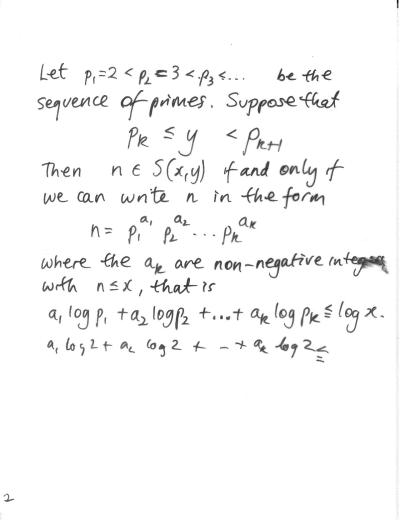 Let p₁=2 < p₂=3 < p₃ <... be the
sequence of primes. Suppose that
pₖ ≤ y < pₖ₊₁
Then n ∈ S(x,y) if and only if
we can write n in the form
n = p₁^a₁ p₂^a₂ ... pₖ^aₖ
where the aₖ are non-negative integers
with n ≤ x, that is
a₁ log p₁ + a₂ log p₂ + ... + aₖ log pₖ ≤ log x.
a₁ log 2 + a₂ log 2 + - + aₖ log 2 ≤
2